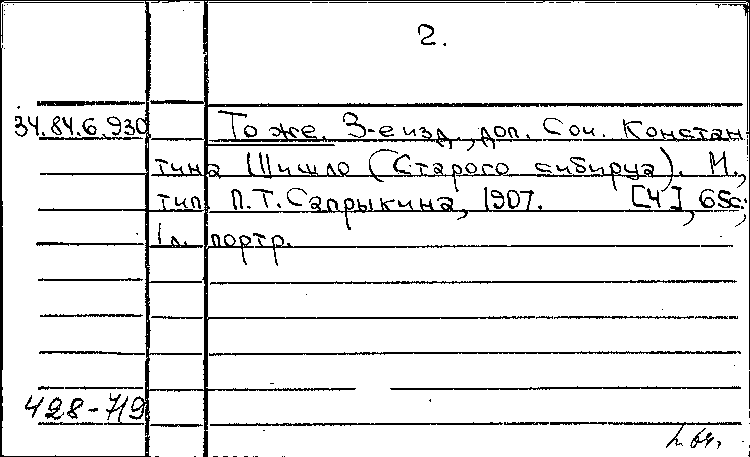 2.
34.84.6.930 То же. 3-е изд., доп. Соч. Констан
тина Шишло (Старого сибиряка). М.,
тип. П.Т. Сапрыкина, 1907. [4], 68с.,
1 л. портр.
428-719